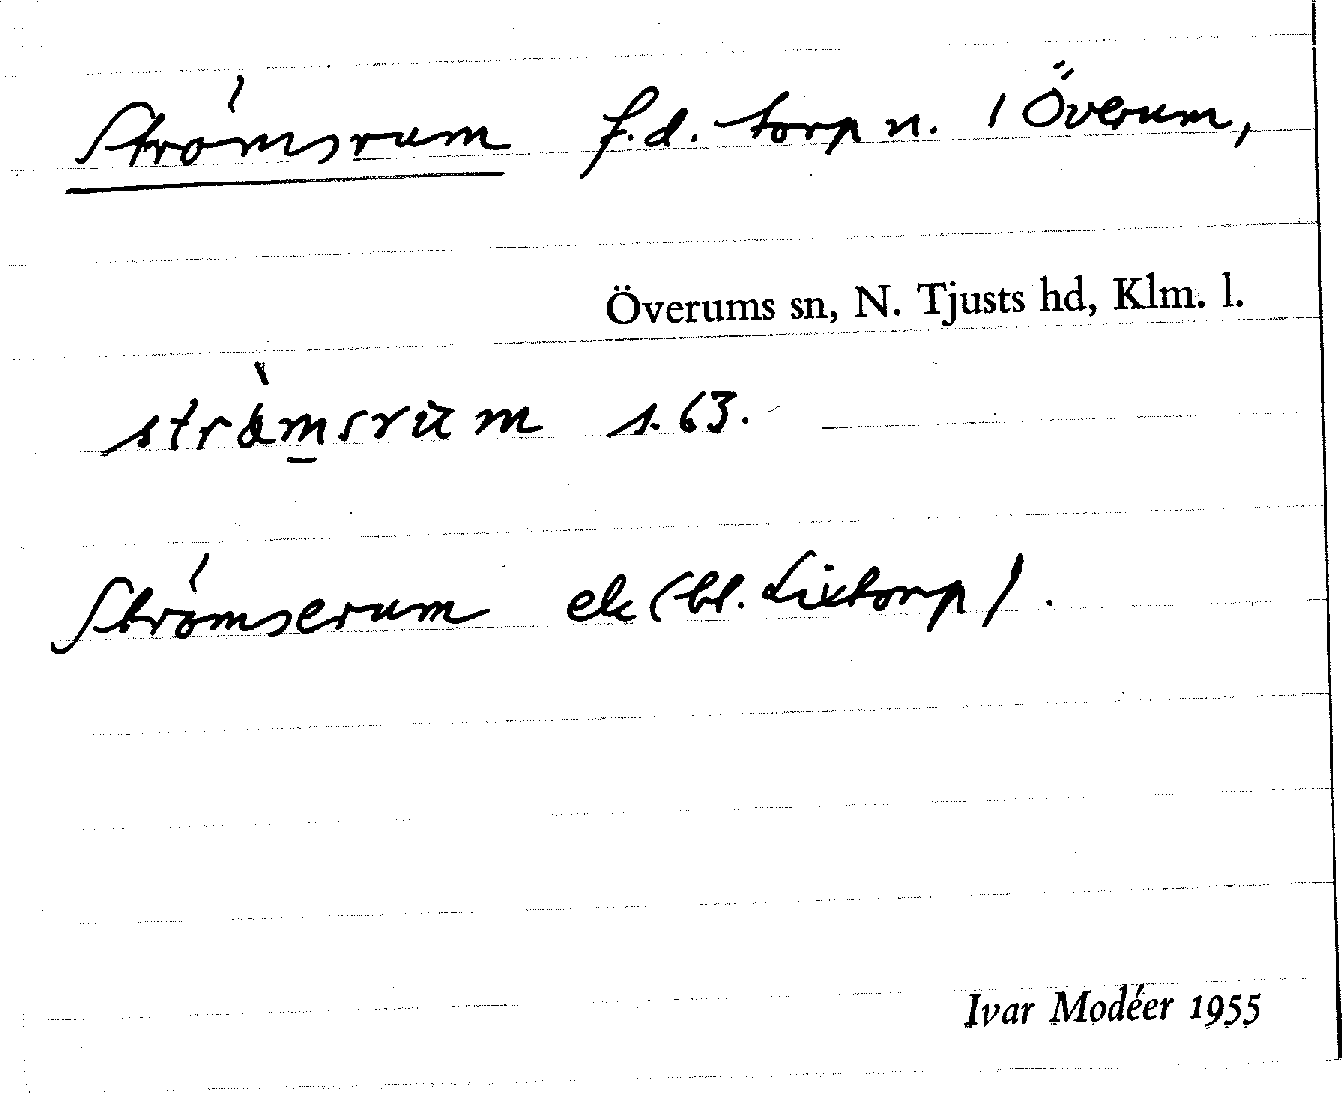 Strömsrum f.d. torp n. i Överum,
Överums sn, N. Tjusts hd, Klm. l.
s. 63.
Strömserum ek (bl. Lixtorp).
Ivar Modéer 1955